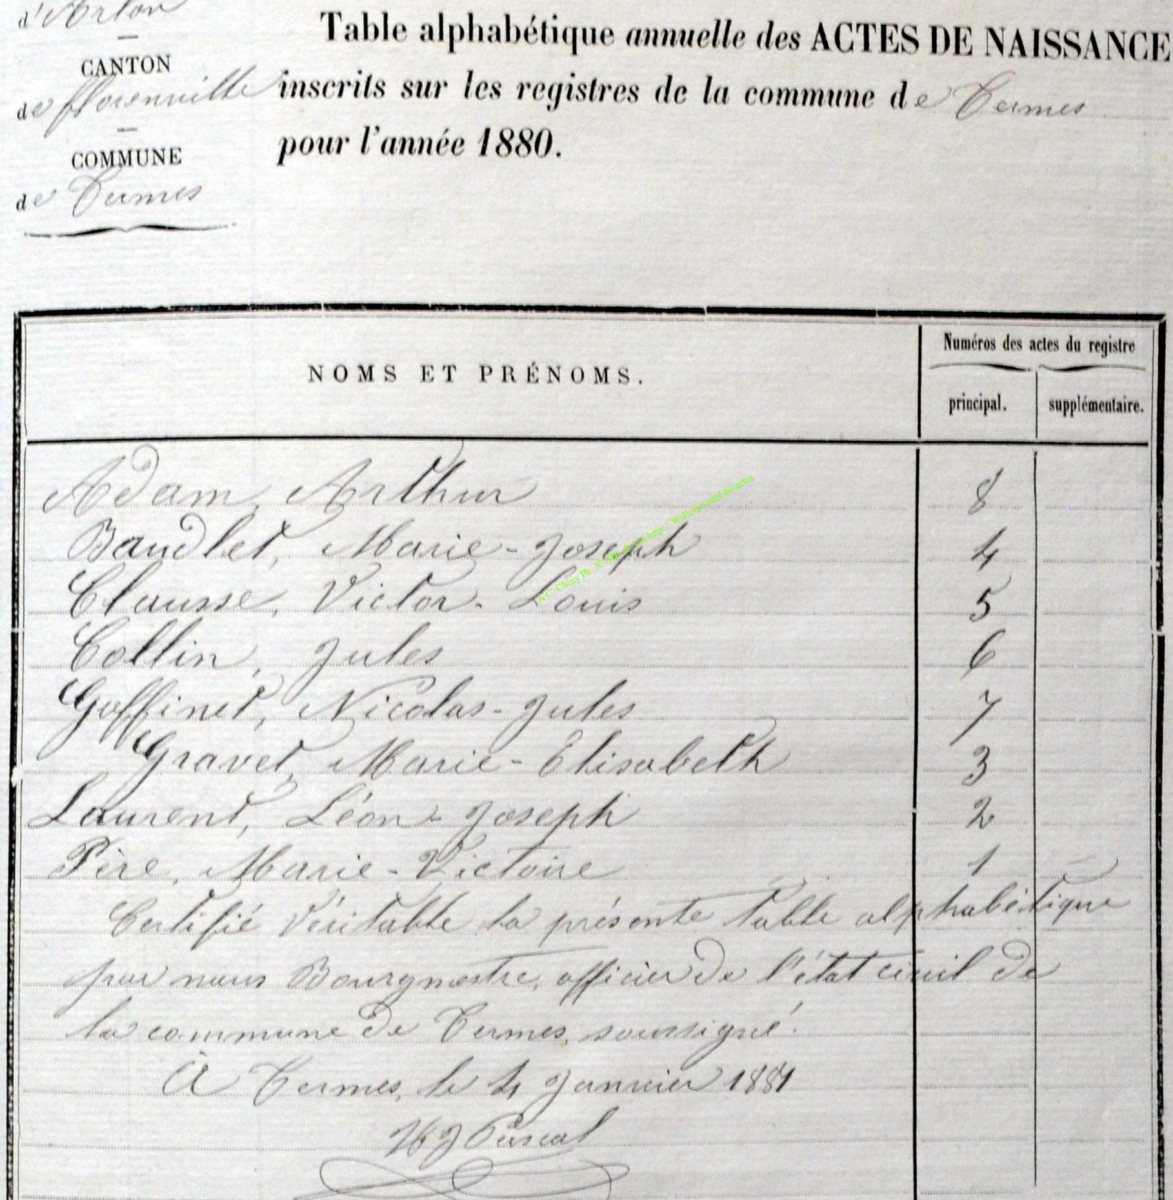 d'Arlon
CANTON
de Florenville
COMMUNE
de Termes
Table alphabétique annuelle des ACTES DE NAISSANCE
inscrits sur les registres de la commune de Termes
pour l'année 1880.
NOMS ET PRÉNOMS.
Numéros des actes du registre
principal. supplémentaire.
Adam, Arthur 8
Baudlet, Marie-Joseph 4
Clausse, Victor-Louis 5
Collin, Jules 6
Goffinet, Nicolas-Jules 7
Gravet, Marie-Elisabeth 3
Laurent, Léon-Joseph 2
Pire, Marie-Victoire 1
Certifié véritable la présente table alphabétique
par nous Bourgmestre, officier de l'état civil de
la commune de Termes, soussigné.
À Termes, le 4 Janvier 1881